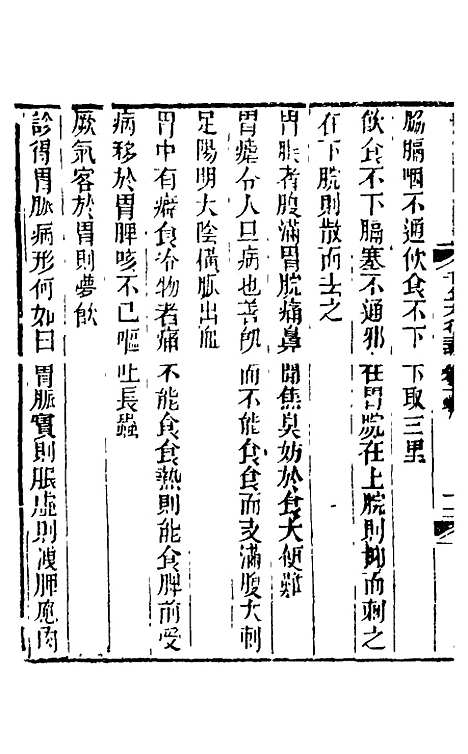 脇膈咽不通飲食不下下取三里
飲食不下膈塞不通邪在胃脘在上脘則抑而刺之
在下脘則散而去之
胃脹者腹滿胃脘痛鼻聞焦臭妨於食大便難
胃瘧令人旦病也善飢而不能食食而支滿腹大刺
足陽明大陰橫脈出血
胃中有癖食冷物者痛不能食食熱則能食脾前受
病移於胃脾咳不已嘔吐長蟲
厥氣客於胃則夢飲
診得胃脈病形何如曰胃脈實則脹虛則洩胛胞肉